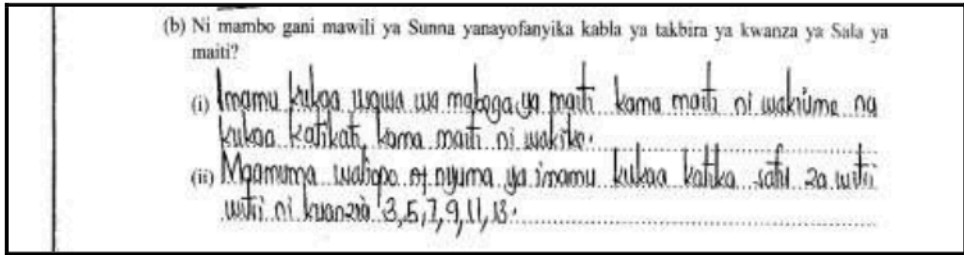 (b) Ni mambo gani mawili ya Sunna yanayofanyika kabla ya takbira ya kwanza ya Sala ya
maiti?
(i) Imamu kukaa usawa wa mabega ya maiti kama maiti ni wakiume na
kukaa katikati kama maiti ni wakike.
(ii) Maamuma waliopo nyuma ya imamu kukaa katika safu za witri
witri ni kuanzia 3,5,7,9,11,13.